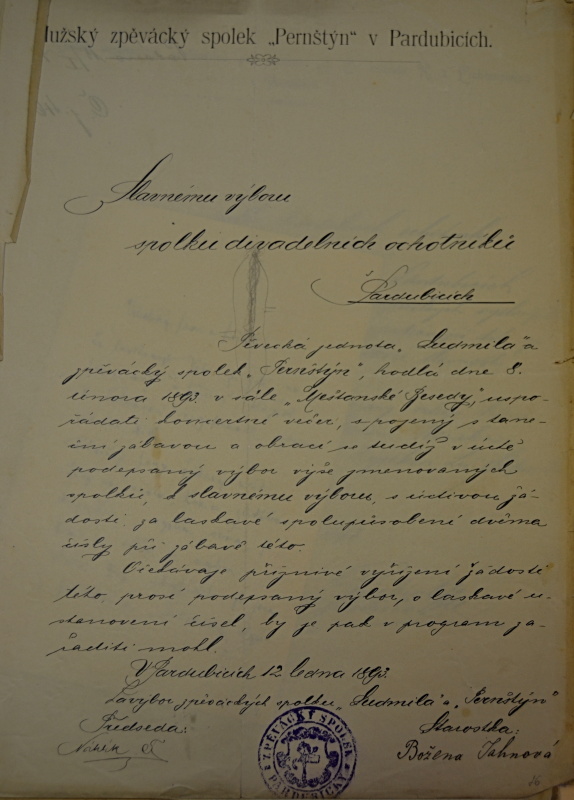 Mužský zpěvácký spolek „Pernštýn“ v Pardubicích.
Slavnému výboru
spolku divadelních ochotníků
v Pardubicích
Pěvecká jednota „Ludmila“ a
zpěvácký spolek „Pernštýn“, hodlá dne 8.
února 1893 v sále „Měšťanské Besedy“ uspo-
řádati koncertné večer, spojený s taneč-
ční zábavou a obrací se tudíž v úctě
podepsaný výbor výše jmenovaných
spolků, k slavnému výboru, s uctivou žá-
dostí za laskavé spolupůsobení dvěma
čísly při zábavě této.
Očekávaje příznivé vyřízení žádosti
této, prosí podepsaný výbor, o laskavé u-
stanovení čísel, by je pak v program za-
řaditi mohl.
V Pardubicích 12 ledna 1893.
Za výbor zpěváckých spolků „Ludmila“ a „Pernštýn“
Předseda: Starostka:
Božena Jahnová
ZPĚVÁCKÝ SPOLEK
PARDUBICKÝ
16